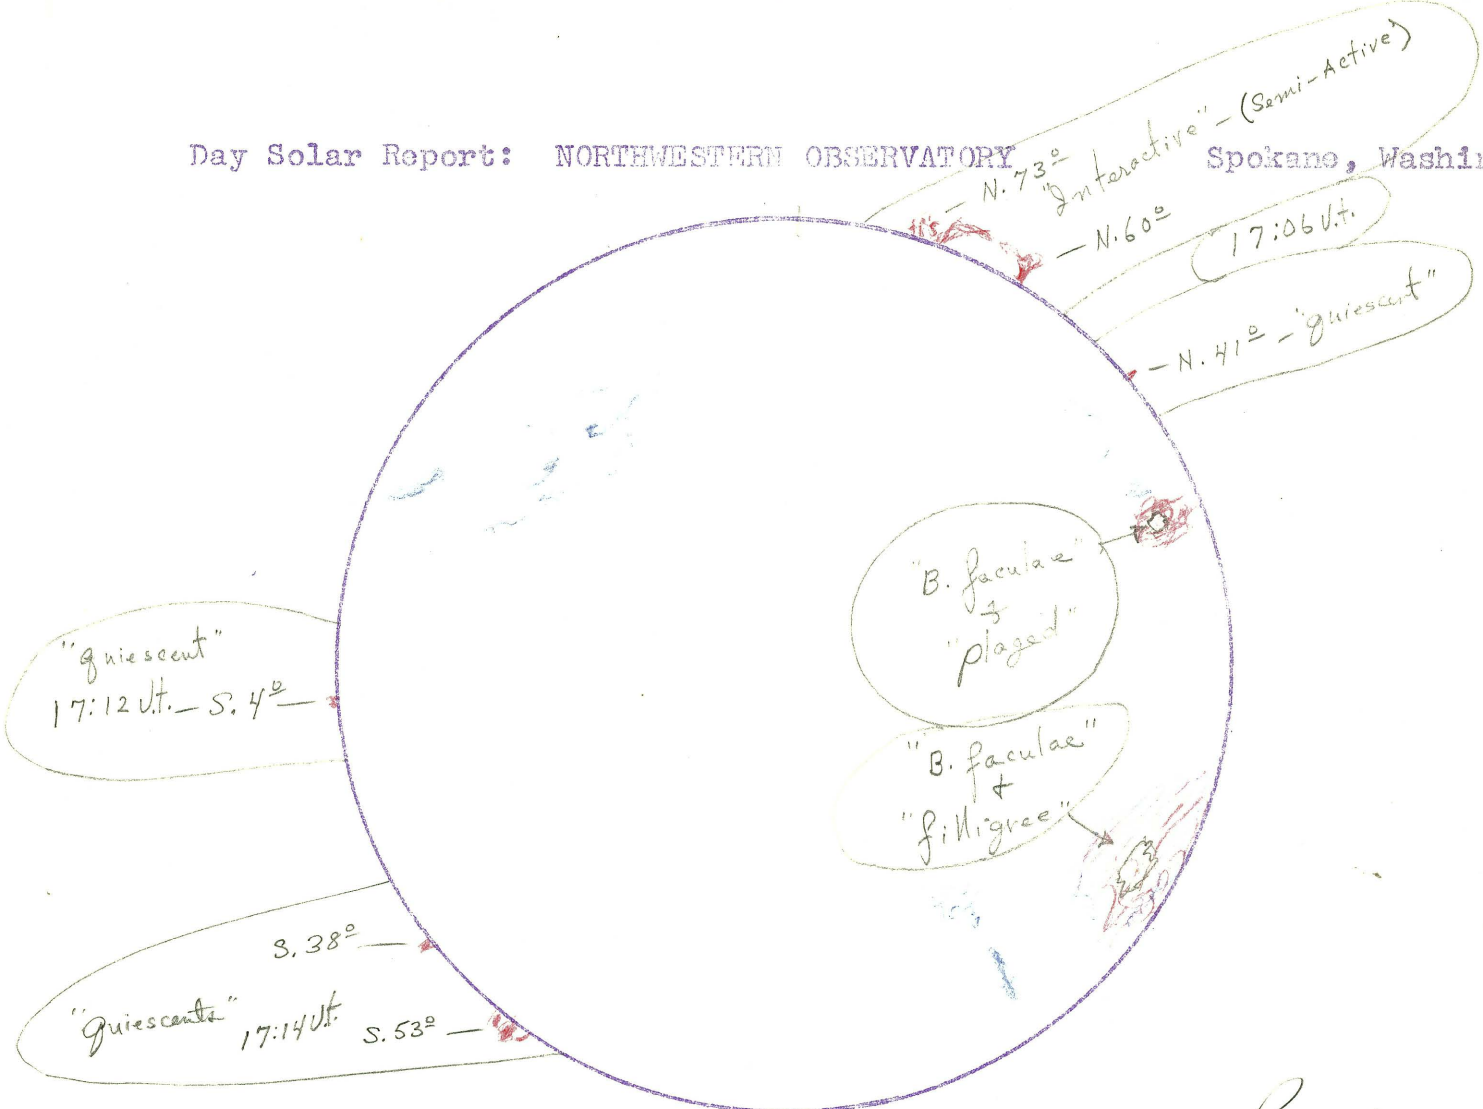 Day Solar Report: NORTHWESTERN OBSERVATORY Spokane, Washin
N. 73º
"Interactive" - (Semi-Active)
N. 60º
17:06 U.t.
N. 41º - "quiescent"
"B. faculae"
"plaged"
"B. faculae"
+
"filligree"
"quiescent"
17:12 U.t. - S. 4º
S. 38º
"quiescents" 17:14 U.t. S. 53º